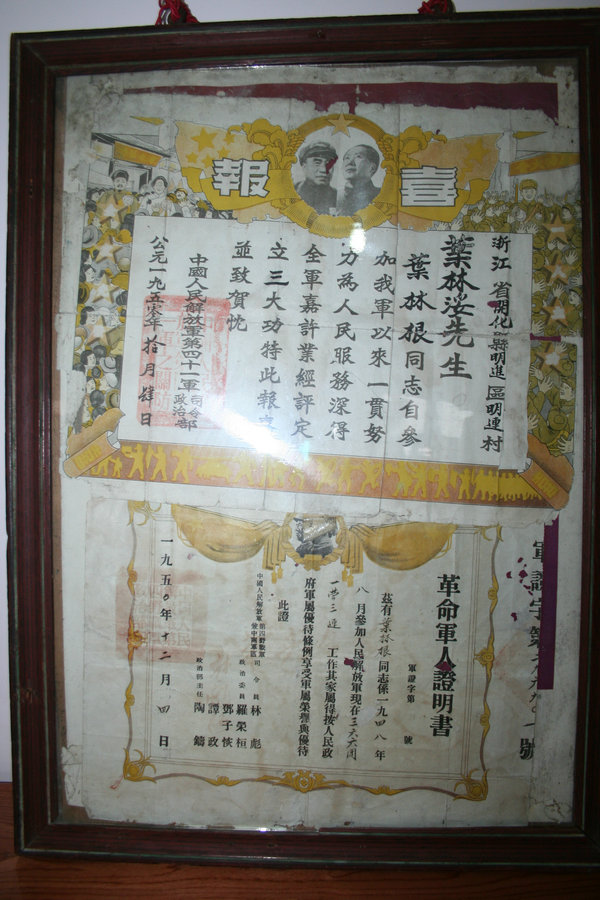 喜報
浙江省開化縣明進區明連村
葉林婆先生
葉林根同志自參
加我軍以來一貫努
力為人民服務深得
全軍嘉許業經評定
立三大功特此報喜
並致賀忱
中國人民解放軍第四十一軍司令部政治部
公元一九五零年拾月肆日
革命軍人證明書
軍證字第 號
茲有葉林根同志係一九四八年
八月參加人民解放軍現在三六六團
一營三連 工作其家屬得按人民政
府軍屬優待條例享受軍屬榮譽與優待
此證
中國人民解放軍第四野戰軍暨中南軍區
司令員 林彪
政治委員 羅榮桓
鄧子恢
譚政
政治部主任 陶鑄
一九五〇年十二月四日